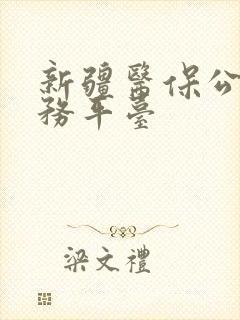 新疆醫保公
務平臺
梁文禮